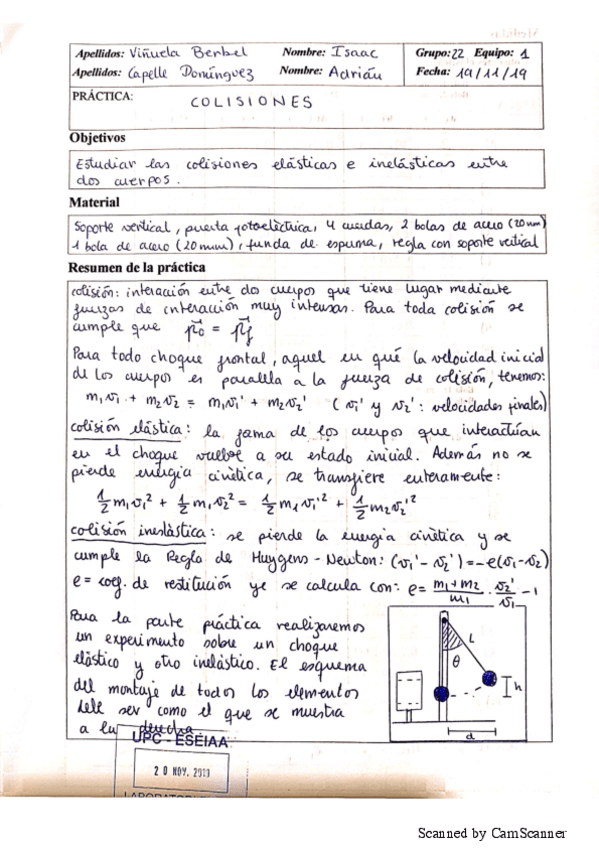 Apellidos: Viñuela Berbel Nombre: Isaac Grupo: 22 Equipo: 1
Apellidos: Capelle Domínguez Nombre: Adrián Fecha: 19/11/19
PRÁCTICA: COLISIONES
Objetivos
Estudiar las colisiones elásticas e inelásticas entre
dos cuerpos.
Material
Soporte vertical, puerta fotoeléctrica, 4 cuerdas, 2 bolas de acero (20mm)
1 bola de acero (20mm), funda de espuma, regla con soporte vertical
Resumen de la práctica
colisión: interacción entre dos cuerpos que tiene lugar mediante
fuerzas de interacción muy intensas. Para toda colisión se
cumple que p₀ = p_f
Para todo choque frontal, aquel en qué la velocidad inicial
de los cuerpos es paralela a la fuerza de colisión, tenemos:
m₁v₁ + m₂v₂ = m₁v₁' + m₂v₂' (v₁' y v₂': velocidades finales)
colisión elástica: la foma de los cuerpos que interactúan
en el choque vuelve a su estado inicial. Además no se
pierde energía cinética, se transfiere enteramente:
½ m₁v₁² + ½ m₁v₂² = ½ m₁v₁'² + ½ m₂v₂'²
colisión ineslàstica: se pierde la energía cinética y se
cumple la Regla de Huygens - Newton: (v₁' - v₂') = -e(v₁-v₂)
e = coef. de restitución y se calcula con: e = (m₁+m₂)/m₁ · v₂'/v₁ - 1
Para la parte práctica realizaremos
un experimento sobre un choque
elástico y otro inelástico. El esquema
del montaje de todos los elementos
debe ser como el que se muestra
a la derecha
L
θ
h
d
UPC - ESEIAA
20 NOV. 2019
Scanned by CamScanner